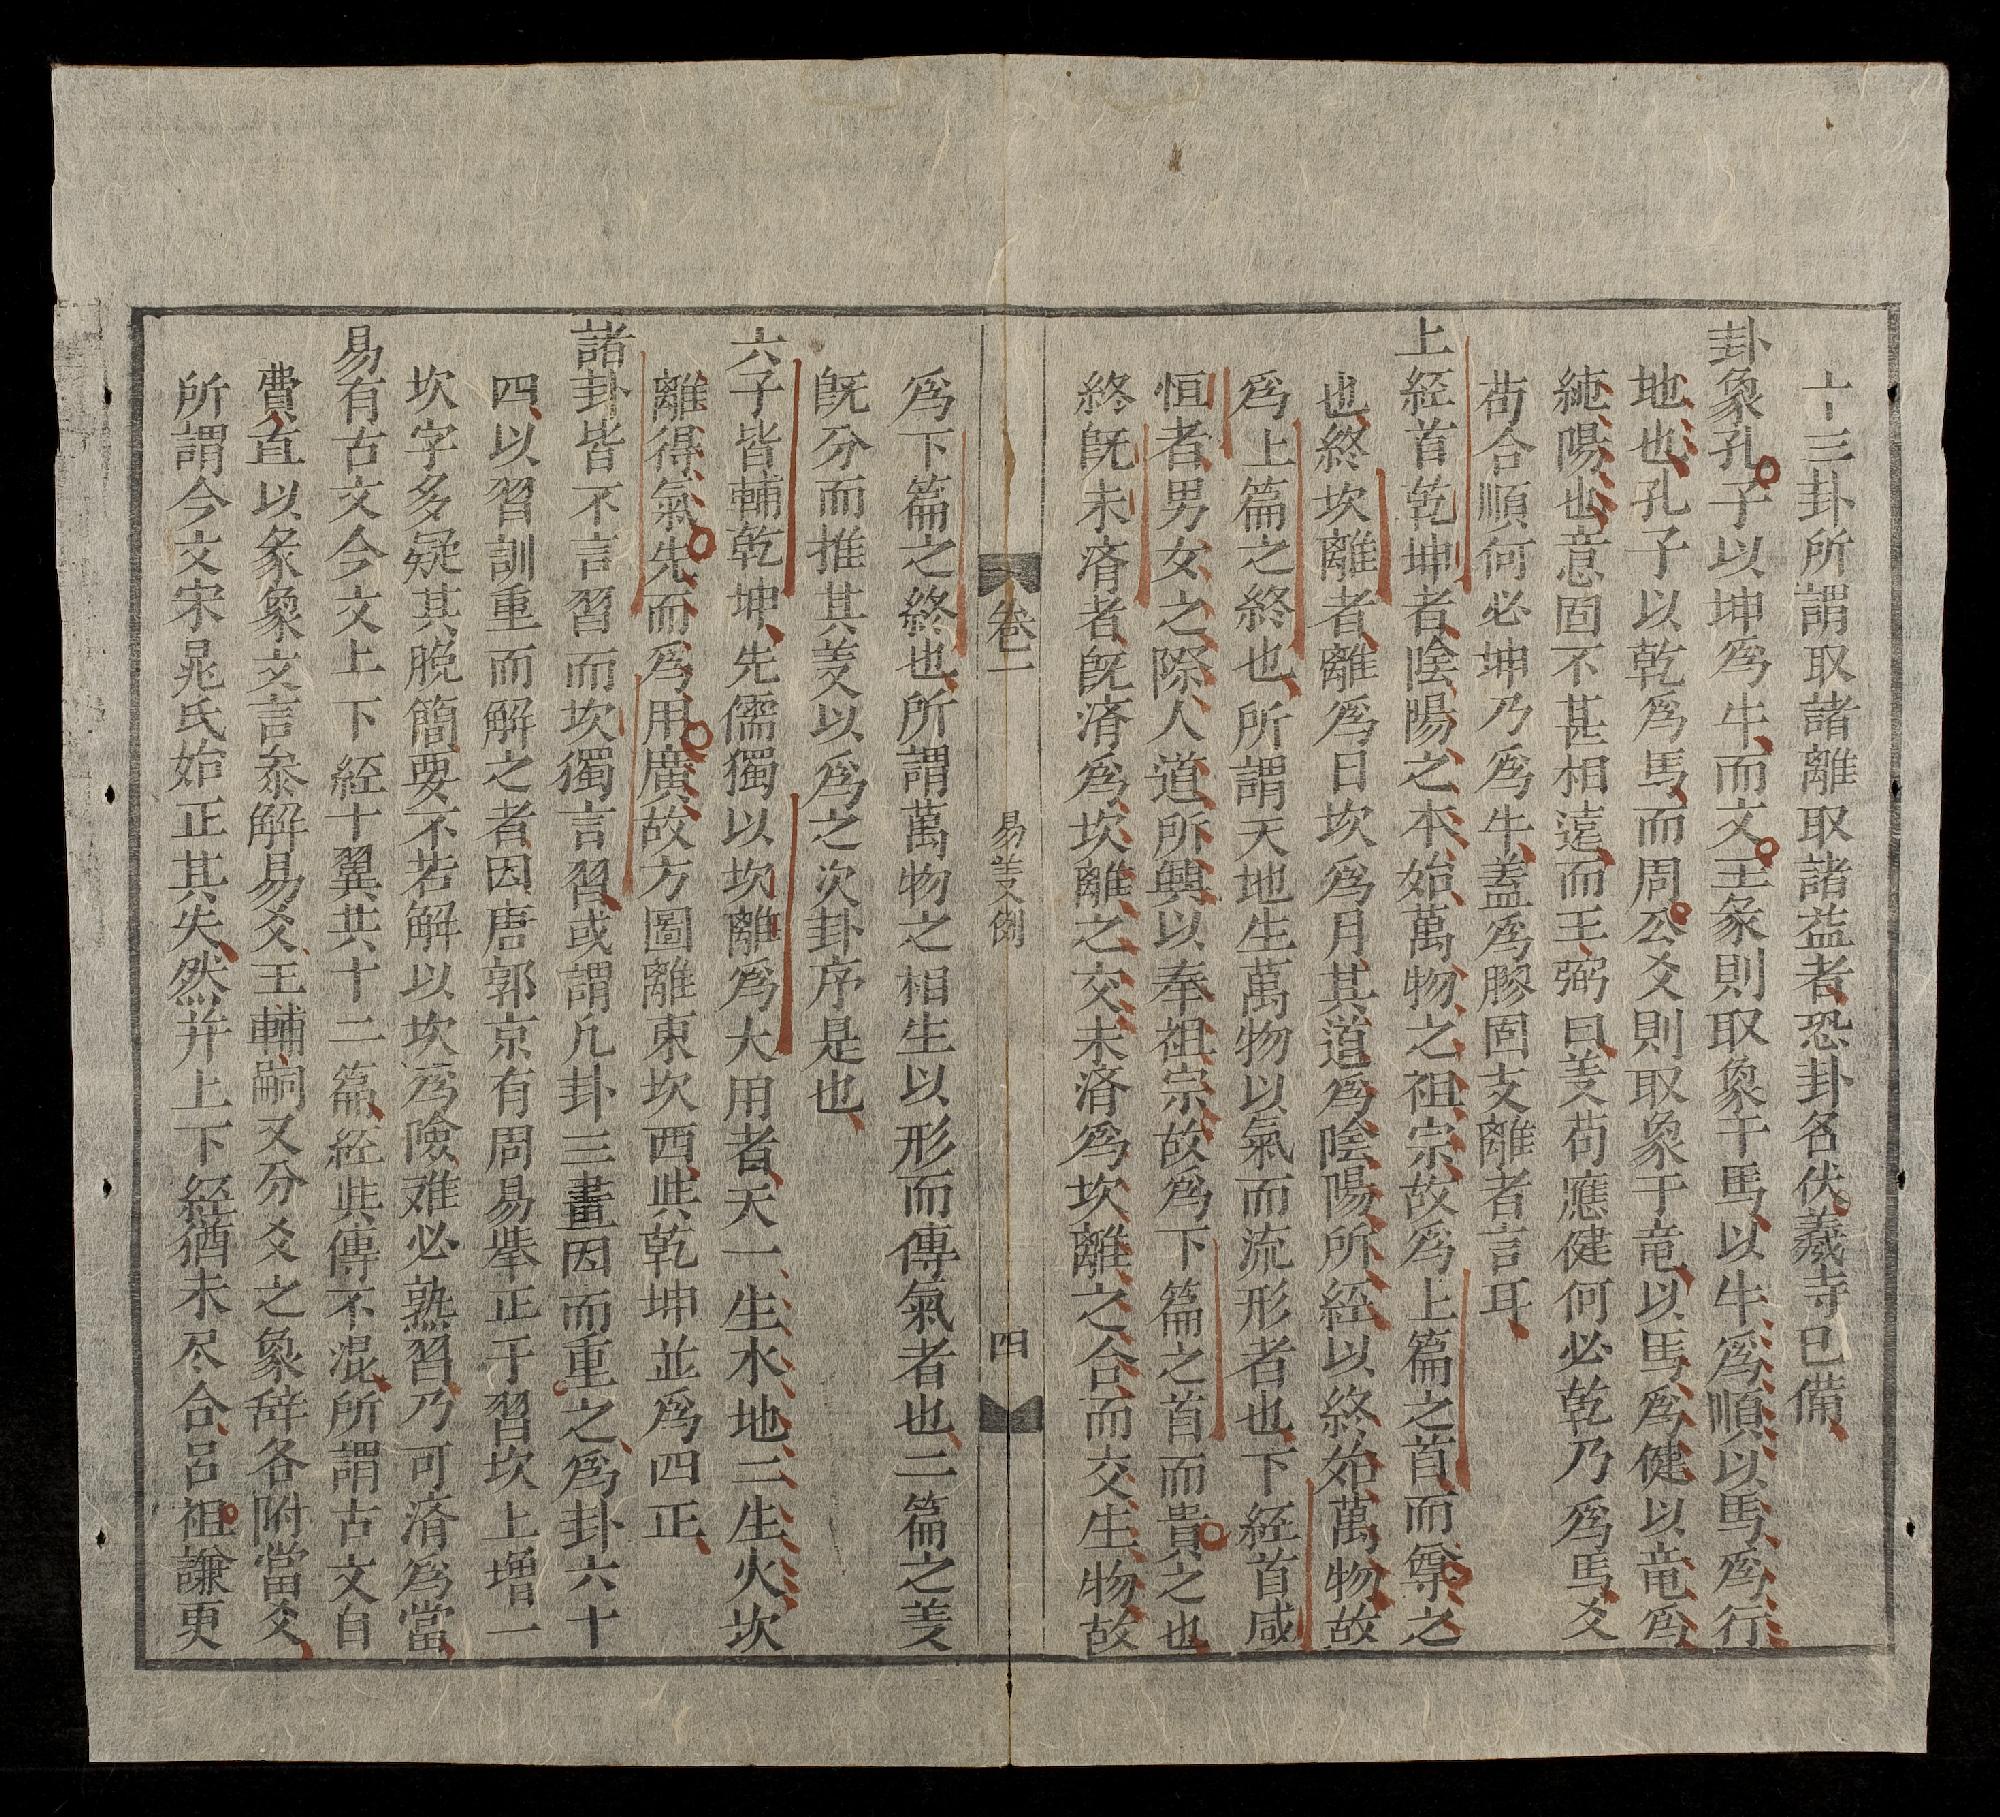 十三卦所謂取諸離取諸益者恐卦名伏羲寺已備
卦象孔子以坤爲牛而文王彖則取象于馬以牛爲順以馬爲行
地也孔子以乾爲馬而周公爻則取象于竜以馬爲健以竜爲
純陽也意固不甚相遠而王弼曰𦍌苟應健何必乾乃爲馬爻
苟合順何必坤乃爲牛盖爲膠固支離者言耳
上經首乾坤者陰陽之本始萬物之祖宗故爲上篇之首而尊之
也終坎離者離爲日坎爲月其道爲陰陽所經以終始萬物故
爲上篇之終也所謂天地生萬物以氣而流形者也下經首咸
恒者男女之際人道所興以奉祖宗故爲下篇之首而貴之也
終旣未済者旣済爲坎離之交未済爲坎離之合而交生物故
卷一
易𦍌例
四
爲下篇之終也所謂萬物之相生以形而傳氣者也二篇之𦍌
旣分而推其𦍌以爲之次卦序是也
六子皆輔乾坤先儒獨以坎離爲大用者天一生水地二生火坎
離得氣先而爲用廣故方圖離東坎西與乾坤並爲四正
諸卦皆不言習而坎獨言習或謂凢卦三畫因而重之爲卦六十
四以習訓重而解之者因唐郭京有周易举正于習坎上增一
坎字多疑其脫簡要不若解以坎爲險难必熟習乃可済爲當
易有古文今文上下經十翼共十二篇經與傳不混所謂古文自
費直以彖象文言叅解易爻王輔嗣又分爻之象辞各附當爻
所謂今文宋晁氏始正其失然并上下經猶未尽合呂祖謙更